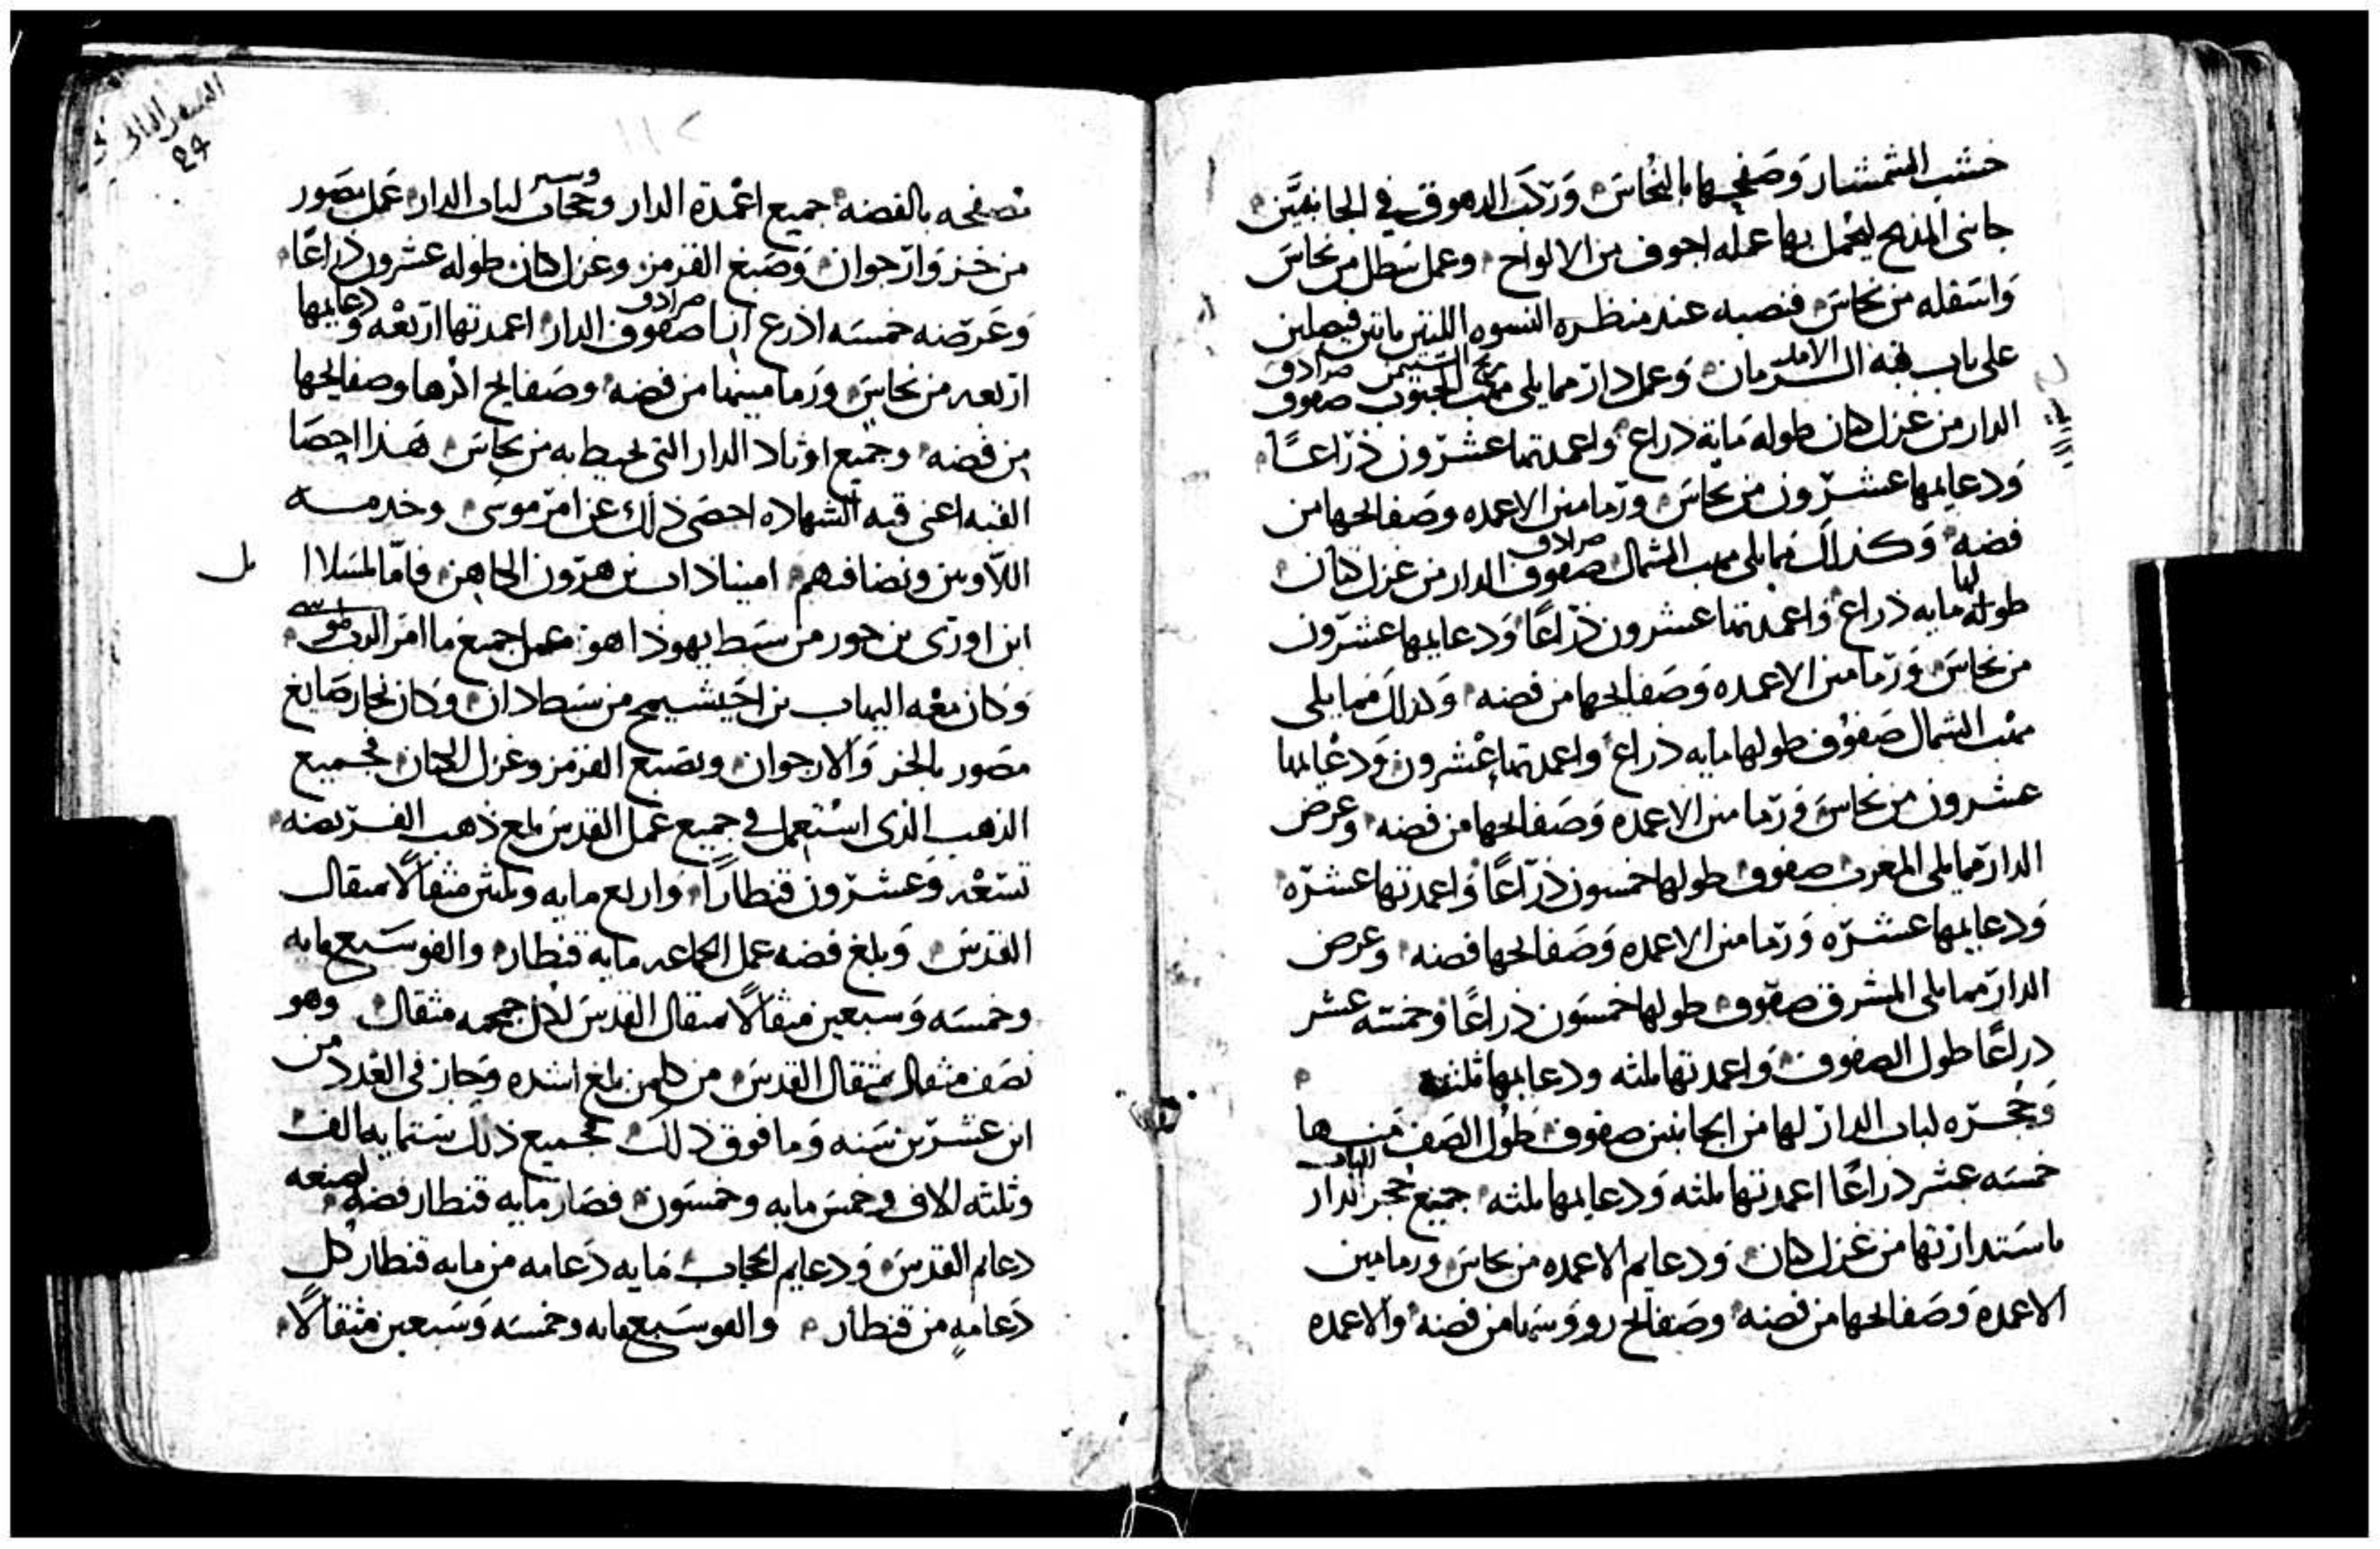 خشب الشمشار وصفحها بالنحاس وركب الدهوق في الجانبين
جانبي المذبح ليحمل بها عمله اجوف من الالواح وعمل سطل من نحاس
واسفله من نحاس فنصبه عند منظره النسوه اللتين ياتين فيصلين
على باب قبه الزمان وعمل دار مما يلي مهب الجنوب صفوف
الدار من غزل كان طوله مايه ذراع واعمدتها عشرون ذراعًا
ودعايمها عشرون من نحاس ورمامين الاعمده وصفايحها من
فضه وكذلك مما يلي مهب الشمال صفوف الدار من غزل كان
طوله مايه ذراع واعمدتها عشرون ذراعًا ودعايمها عشرون
من نحاس ورمامين الاعمده وصفايحها من فضه وكذلك مما يلي
مهب الشمال صفوف طولها مايه ذراع واعمدتها عشرون ودعايمها
عشرون من نحاس ورمامين الاعمده وصفايحها من فضه وعرض
الدار مما يلي المغرب صفوف طولها خمسون ذراعًا واعمدتها عشره
ودعايمها عشره ورمامين الاعمده وصفايحها فضه وعرض
الدار مما يلي المشرق صفوف طولها خمسون ذراعًا وخمسه عشر
ذراعًا طول الصفوف واعمدتها ثلثه ودعايمها ثلثه
وحجره لباب الدار لها من الجانبين صفوف طول الصف منها
خمسه عشر ذراعًا اعمدتها ثلثه ودعايمها ثلثه جميع حجر الدار
باستدارتها من غزل كان ودعايم الاعمده من نحاس ورمامين
الاعمده وصفايحها من فضه وصفايح رووسها من فضه والاعمده
السفر الثاني
29
مصفحه بالفضه جميع اعمدة الدار وحجاب لباب الدار عمل مصور
من خز وارجوان وصبغ القرمز وغزل كان طوله عشرون ذراعًا
وعرضه خمسه اذرع صفوف الدار اعمدتها اربعه ودعايمها
اربعه من نحاس ورمامينها من فضه وصفايح اذرها وصفايحها
من فضه وجميع اوتاد الدار التي تحيط به من نحاس هذا احصا
القبه اعني قبه الشهاده احصى ذلك عن امر موسى وخدمه
اللاويين ايثاذاب بن هرون الكاهن فاما بسلال
ابن اوري بن حور من سبط يهوذا هو عمل جميع ما امر الرب موسى
وكان معه اليهاب بن احيشيمح من سبط دان وكان نجار صايغ
مصور بالخز والارجوان وبصبغ القرمز وغزل الكان فجميع
الذهب الذي استعمل في جميع عمل القدس بلغ ذهب الفريضه
تسعه وعشرون قنطارًا واربع مايه وثلثين مثقالًا بمثقال
القدس وبلغ فضه عمل الجماعه مايه قنطار والف وسبع مايه
وخمسه وسبعين مثقالًا بمثقال القدس لكل جمجمه مثقال وهو
نصف مثقال بمثقال القدس من كلمن بلغ اشده وجاز في العدد من
ابن عشرين سنه وما فوق ذلك فجميع ذلك ستمايه الف
وثلثه الاف وخمس مايه وخمسون فصار مايه قنطار فضه لصنعه
دعايم القدس ودعايم الحجاب مايه دعامه من مايه قنطار كل
دعامه من قنطار والف وسبع مايه وخمسه وسبعين مثقالًا